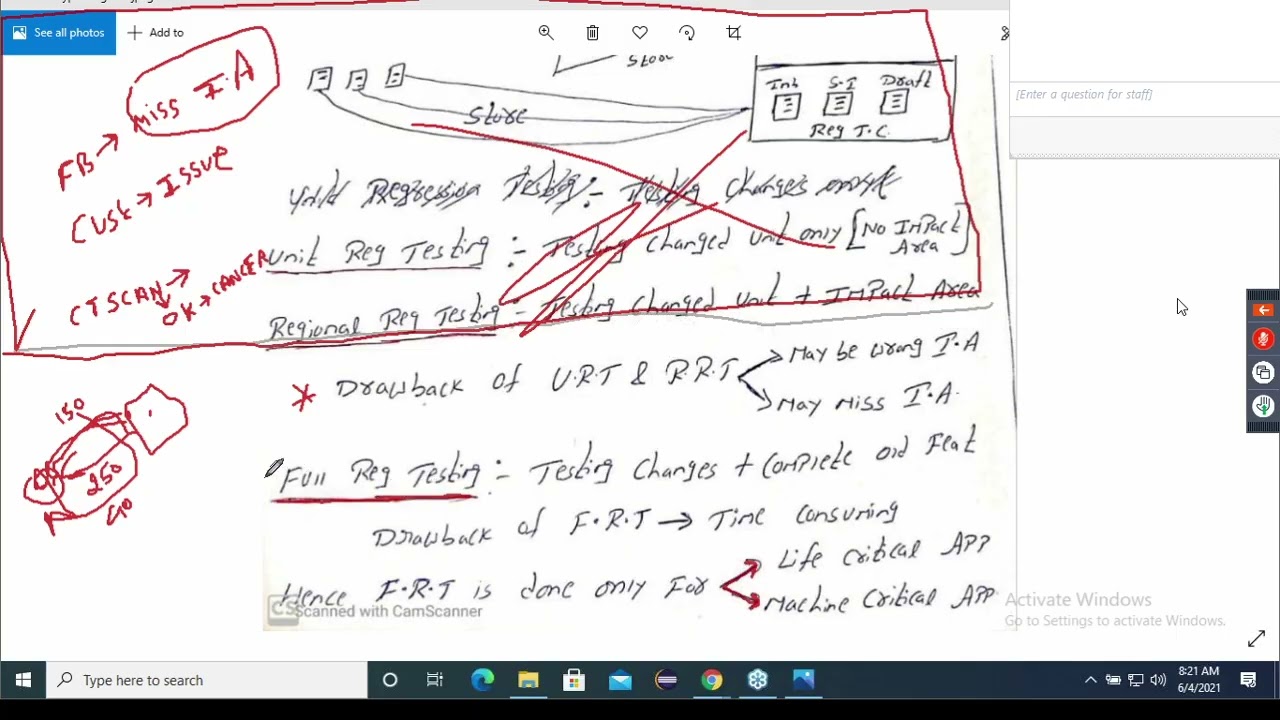 See all photos
Add to
Store
Inb S.I Draft
Reg T.C.
Store
Miss I.A
FB →
Cust → Issue
CT SCAN →
OK → CANCER
Regression Testing :- Testing Changes only
Unit Reg Testing :- Testing changed unit only [No Impact Area]
Regional Reg Testing :- Testing Changed Unit + Impact Area
* Drawback of U.R.T & R.R.T
May be wrong I.A
May Miss I.A.
150
250
Full Reg Testing :- Testing Changes + Complete old Feat
Drawback of F.R.T → Time Consuming
Hence F.R.T is done only For
Life Critical APP
Machine Critical APP
CS Scanned with CamScanner
[Enter a question for staff]
Activate Windows
Go to Settings to activate Windows.
Type here to search
8:21 AM
6/4/2021